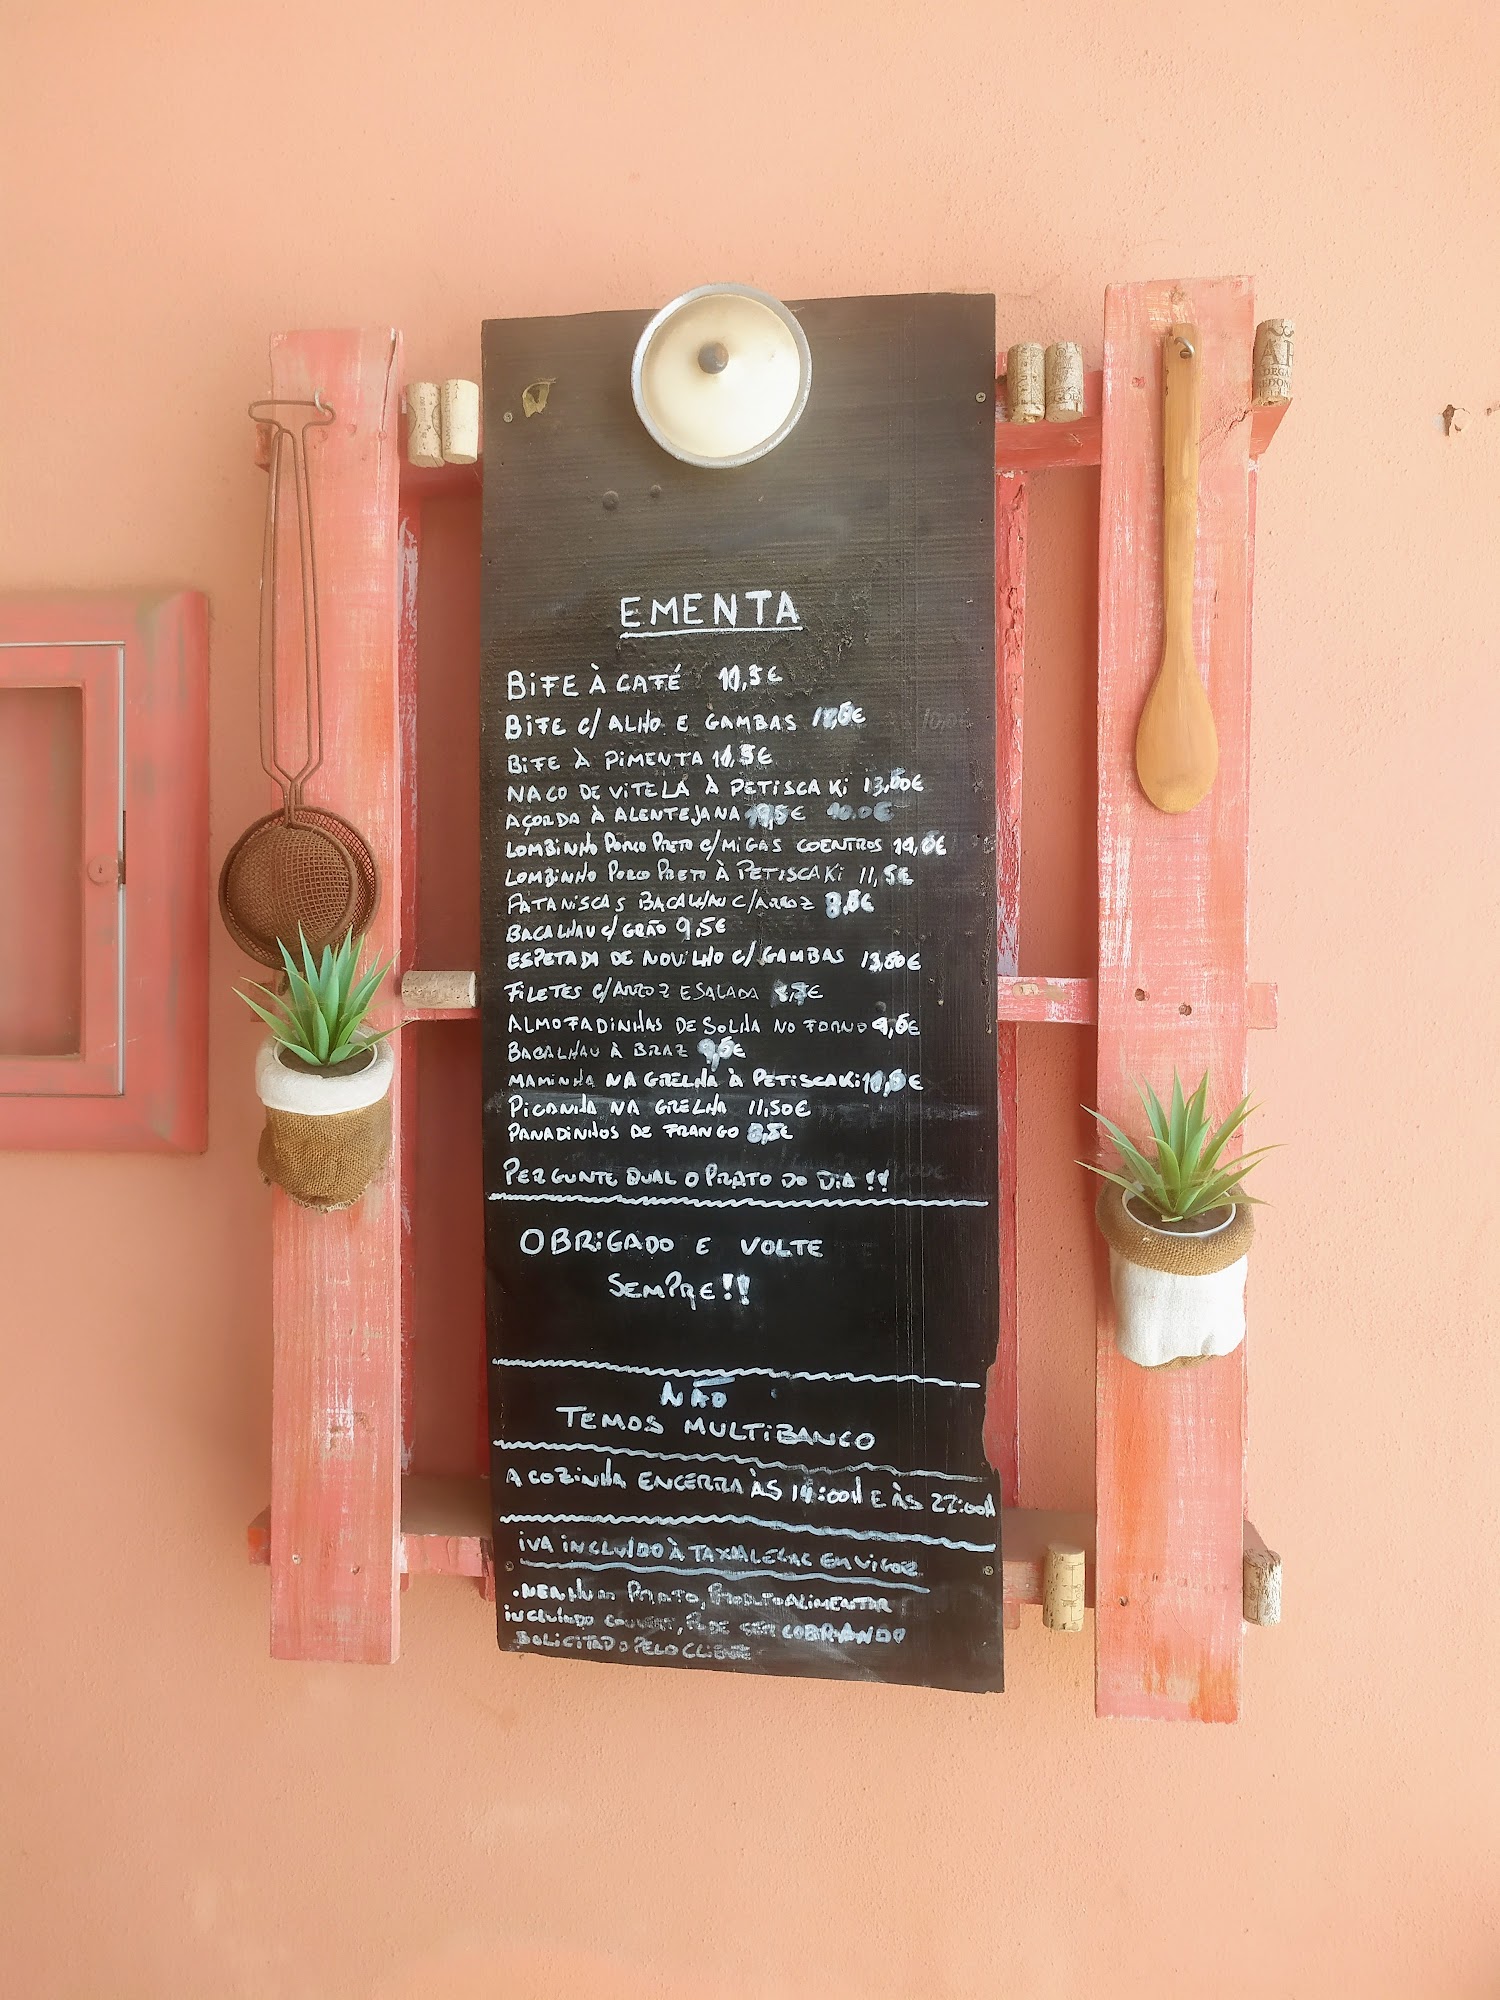 EMENTA
BIFE À CAFÉ
BIFE C/ ALHO E GAMBAS
BIFE À PIMENTA
NACO DE VITELA À PETISCAKI 13,00€
AÇORDA À ALENTEJANA
LOMBINHO PORCO PRETO C/ MIGAS COENTROS
LOMBINHO PORCO PRETO À PETISCAKI 11,5€
PATANISCAS BACALHAU C/ ARROZ
BACALHAU C/ GRÃO 9,5€
ESPETADA DE NOVILHO C/ GAMBAS
FILETES C/ ARROZ E SALADA
ALMOFADINHAS DE SOLHA NO FORNO
BACALHAU À BRAZ
MAMINHA NA GRELHA À PETISCAKI
PICANHA NA GRELHA 11,50€
PANADINHOS DE FRANGO
PERGUNTE QUAL O PRATO DO DIA!!
OBRIGADO E VOLTE
SEMPRE!!
NÃO
TEMOS MULTIBANCO
A COZINHA ENCERRA ÀS 14:00H E ÀS 22:00H
IVA INCLUÍDO À TAXA LEGAL EM VIGOR
.NENHUM PRATO, PRODUTO ALIMENTAR
INCLUÍDO COUVERT, PODE SER COBRANDO
SOLICITADO PELO CLIENTE